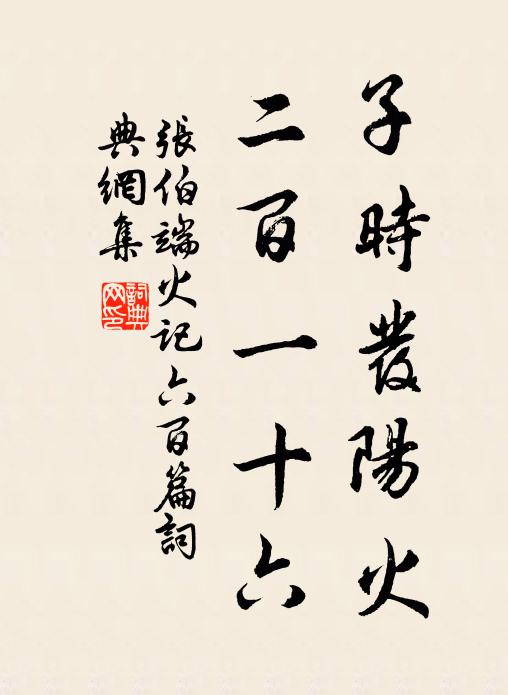 子時發陽火
二百一十六
張伯端火記六百篇詞
典網集
詞典
网印